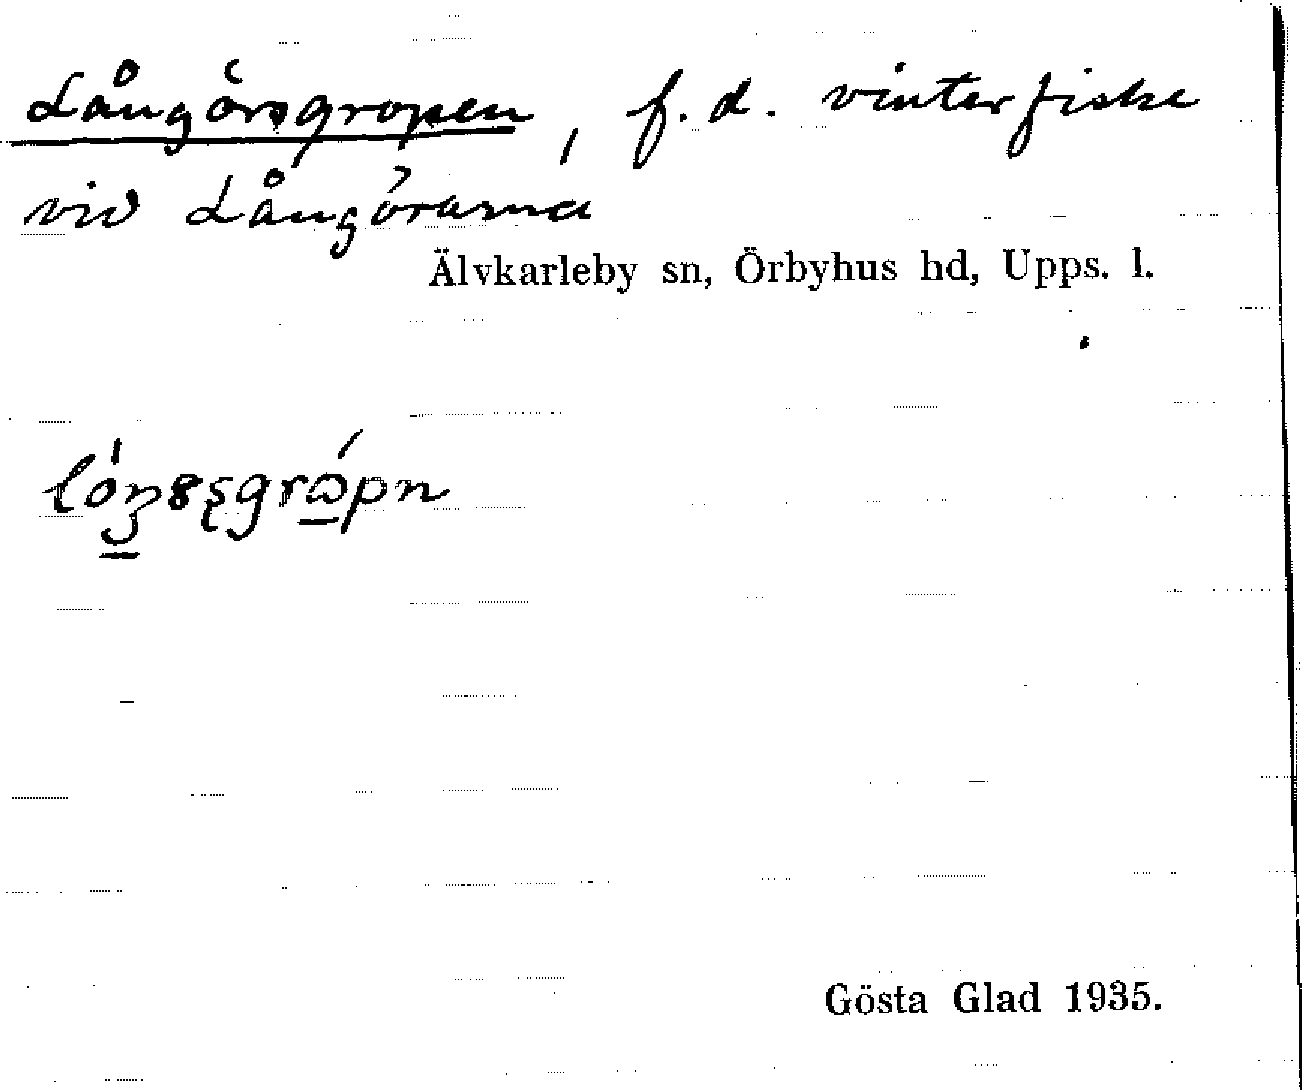 Långörsgropen, f.d. vinterfiske
vid Långörarna
Älvkarleby sn, Örbyhus hd, Upps. l.
Gösta Glad 1935.